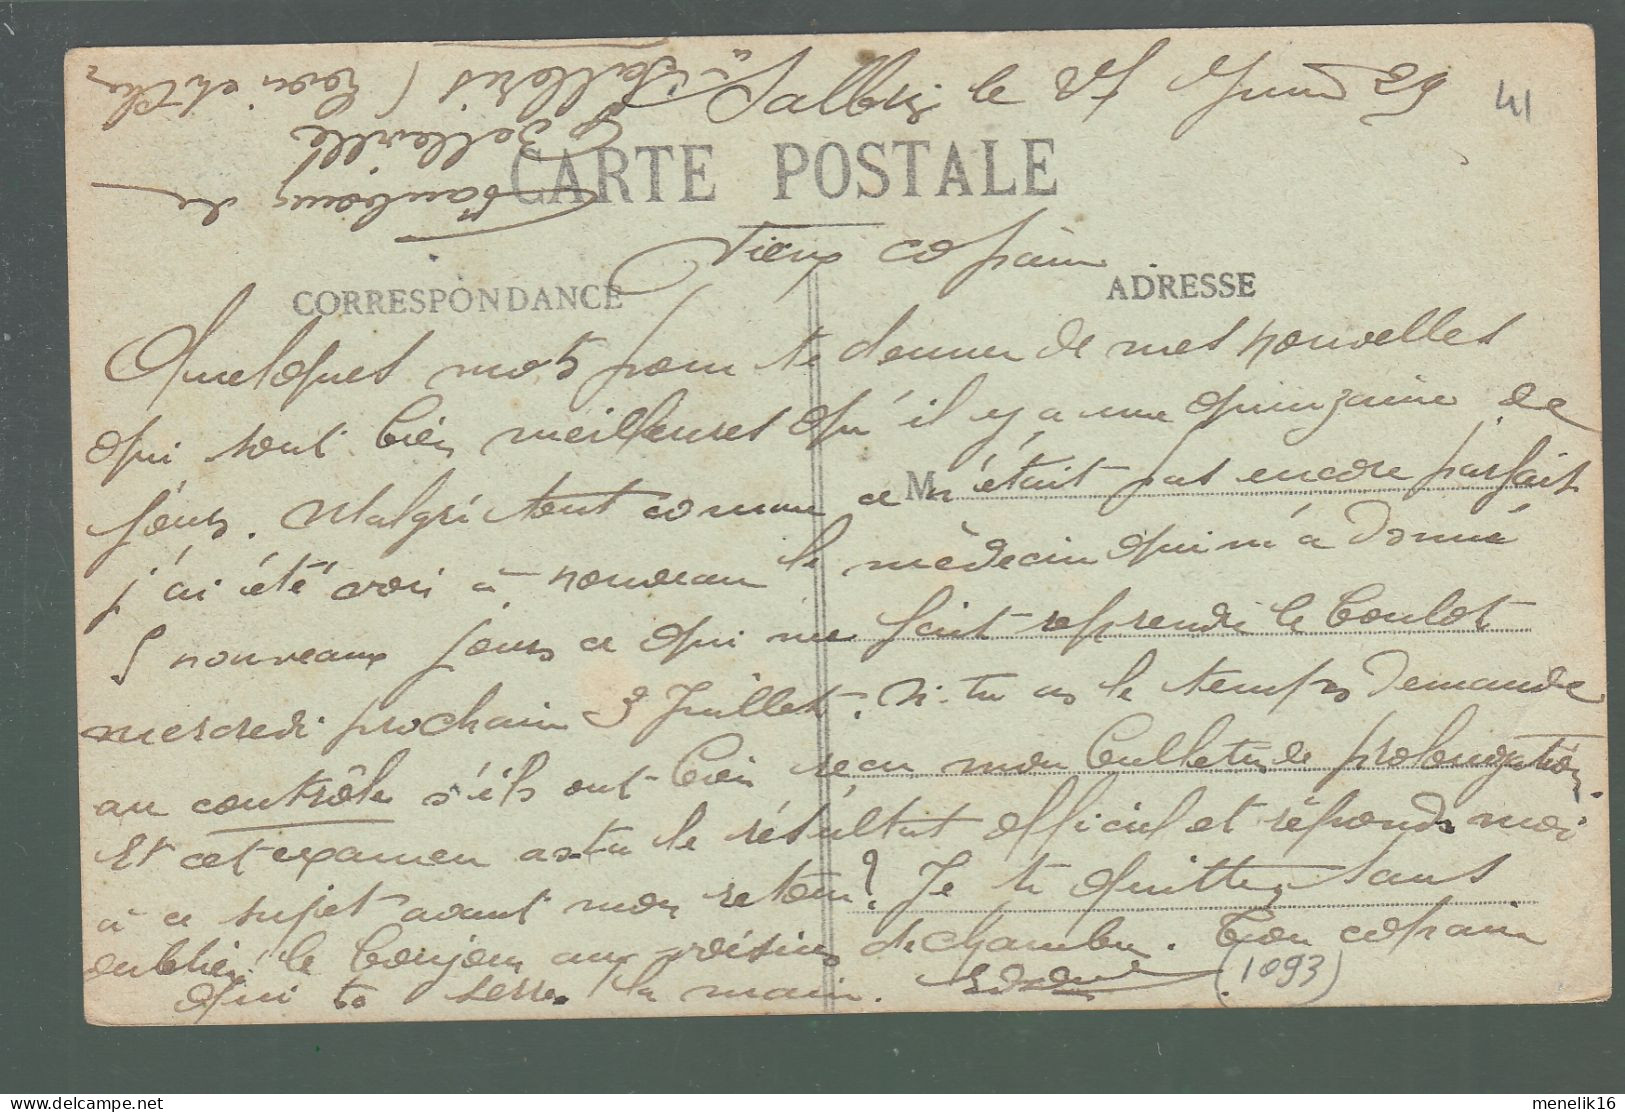 Salbris le 27 Juin 29
41
Faubourg de
Belleville
à Salbris (Loir et Cher
CARTE POSTALE
Vieux copain
CORRESPONDANCE
ADRESSE
Quelques mots pour te donner de mes nouvelles
qui sont bien meilleures qu'il y a une quinzaine de
jours. Malgré tout comme ce n'était pas encore parfait
M
j'ai été voir à nouveau le médecin qui m'a donné
5 nouveaux jours ce qui me fait reprendre le boulot
mercredi prochain 3 Juillet. Si tu as le temps demande
au contrôle s'ils ont bien reçu mon bulletin de prolongation.
Et cet examen as-tu le résultat officiel et réponds moi
à ce sujet avant mon retour? Je te quitte sans
oublier le bonjour aux voisins de chambre. Ton copain
qui te serre la main. (1093)
menelik16